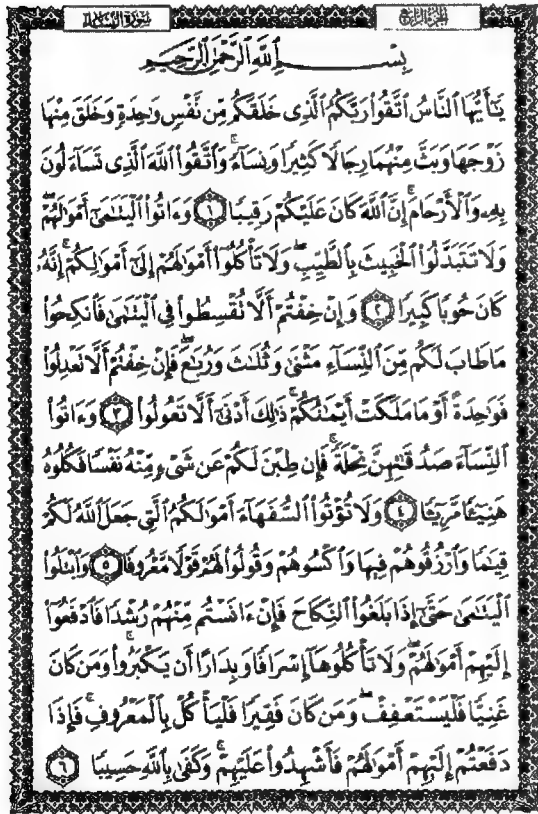 سُورَةُ النِّسَاءِ الجُزْءُ الرَّابِعُ
بِسْمِ ٱللَّهِ ٱلرَّحْمَٰنِ ٱلرَّحِيمِ
يَٰٓأَيُّهَا ٱلنَّاسُ ٱتَّقُوا۟ رَبَّكُمُ ٱلَّذِى خَلَقَكُم مِّن نَّفْسٍ وَٰحِدَةٍ وَخَلَقَ مِنْهَا
زَوْجَهَا وَبَثَّ مِنْهُمَا رِجَالًا كَثِيرًا وَنِسَآءً ۚ وَٱتَّقُوا۟ ٱللَّهَ ٱلَّذِى تَسَآءَلُونَ
بِهِۦ وَٱلْأَرْحَامَ ۚ إِنَّ ٱللَّهَ كَانَ عَلَيْكُمْ رَقِيبًا ١ وَءَاتُوا۟ ٱلْيَتَٰمَىٰٓ أَمْوَٰلَهُمْ ۖ
وَلَا تَتَبَدَّلُوا۟ ٱلْخَبِيثَ بِٱلطَّيِّبِ ۖ وَلَا تَأْكُلُوٓا۟ أَمْوَٰلَهُمْ إِلَىٰٓ أَمْوَٰلِكُمْ ۚ إِنَّهُۥ
كَانَ حُوبًا كَبِيرًا ٢ وَإِنْ خِفْتُمْ أَلَّا تُقْسِطُوا۟ فِى ٱلْيَتَٰمَىٰ فَٱنكِحُوا۟
مَا طَابَ لَكُم مِّنَ ٱلنِّسَآءِ مَثْنَىٰ وَثُلَٰثَ وَرُبَٰعَ ۖ فَإِنْ خِفْتُمْ أَلَّا تَعْدِلُوا۟
فَوَٰحِدَةً أَوْ مَا مَلَكَتْ أَيْمَٰنُكُمْ ۚ ذَٰلِكَ أَدْنَىٰٓ أَلَّا تَعُولُوا۟ ٣ وَءَاتُوا۟
ٱلنِّسَآءَ صَدُقَٰتِهِنَّ نِحْلَةً ۚ فَإِن طِبْنَ لَكُمْ عَن شَىْءٍ مِّنْهُ نَفْسًا فَكُلُوهُ
هَنِيٓـًٔا مَّرِيٓـًٔا ٤ وَلَا تُؤْتُوا۟ ٱلسُّفَهَآءَ أَمْوَٰلَكُمُ ٱلَّتِى جَعَلَ ٱللَّهُ لَكُمْ
قِيَٰمًا وَٱرْزُقُوهُمْ فِيهَا وَٱكْسُوهُمْ وَقُولُوا۟ لَهُمْ قَوْلًا مَّعْرُوفًا ٥ وَٱبْتَلُوا۟
ٱلْيَتَٰمَىٰ حَتَّىٰٓ إِذَا بَلَغُوا۟ ٱلنِّكَاحَ فَإِنْ ءَانَسْتُم مِّنْهُمْ رُشْدًا فَٱدْفَعُوٓا۟
إِلَيْهِمْ أَمْوَٰلَهُمْ ۖ وَلَا تَأْكُلُوهَآ إِسْرَافًا وَبِدَارًا أَن يَكْبَرُوا۟ ۚ وَمَن كَانَ
غَنِيًّا فَلْيَسْتَعْفِفْ ۖ وَمَن كَانَ فَقِيرًا فَلْيَأْكُلْ بِٱلْمَعْرُوفِ ۚ فَإِذَا
دَفَعْتُمْ إِلَيْهِمْ أَمْوَٰلَهُمْ فَأَشْهِدُوا۟ عَلَيْهِمْ ۚ وَكَفَىٰ بِٱللَّهِ حَسِيبًا ٦